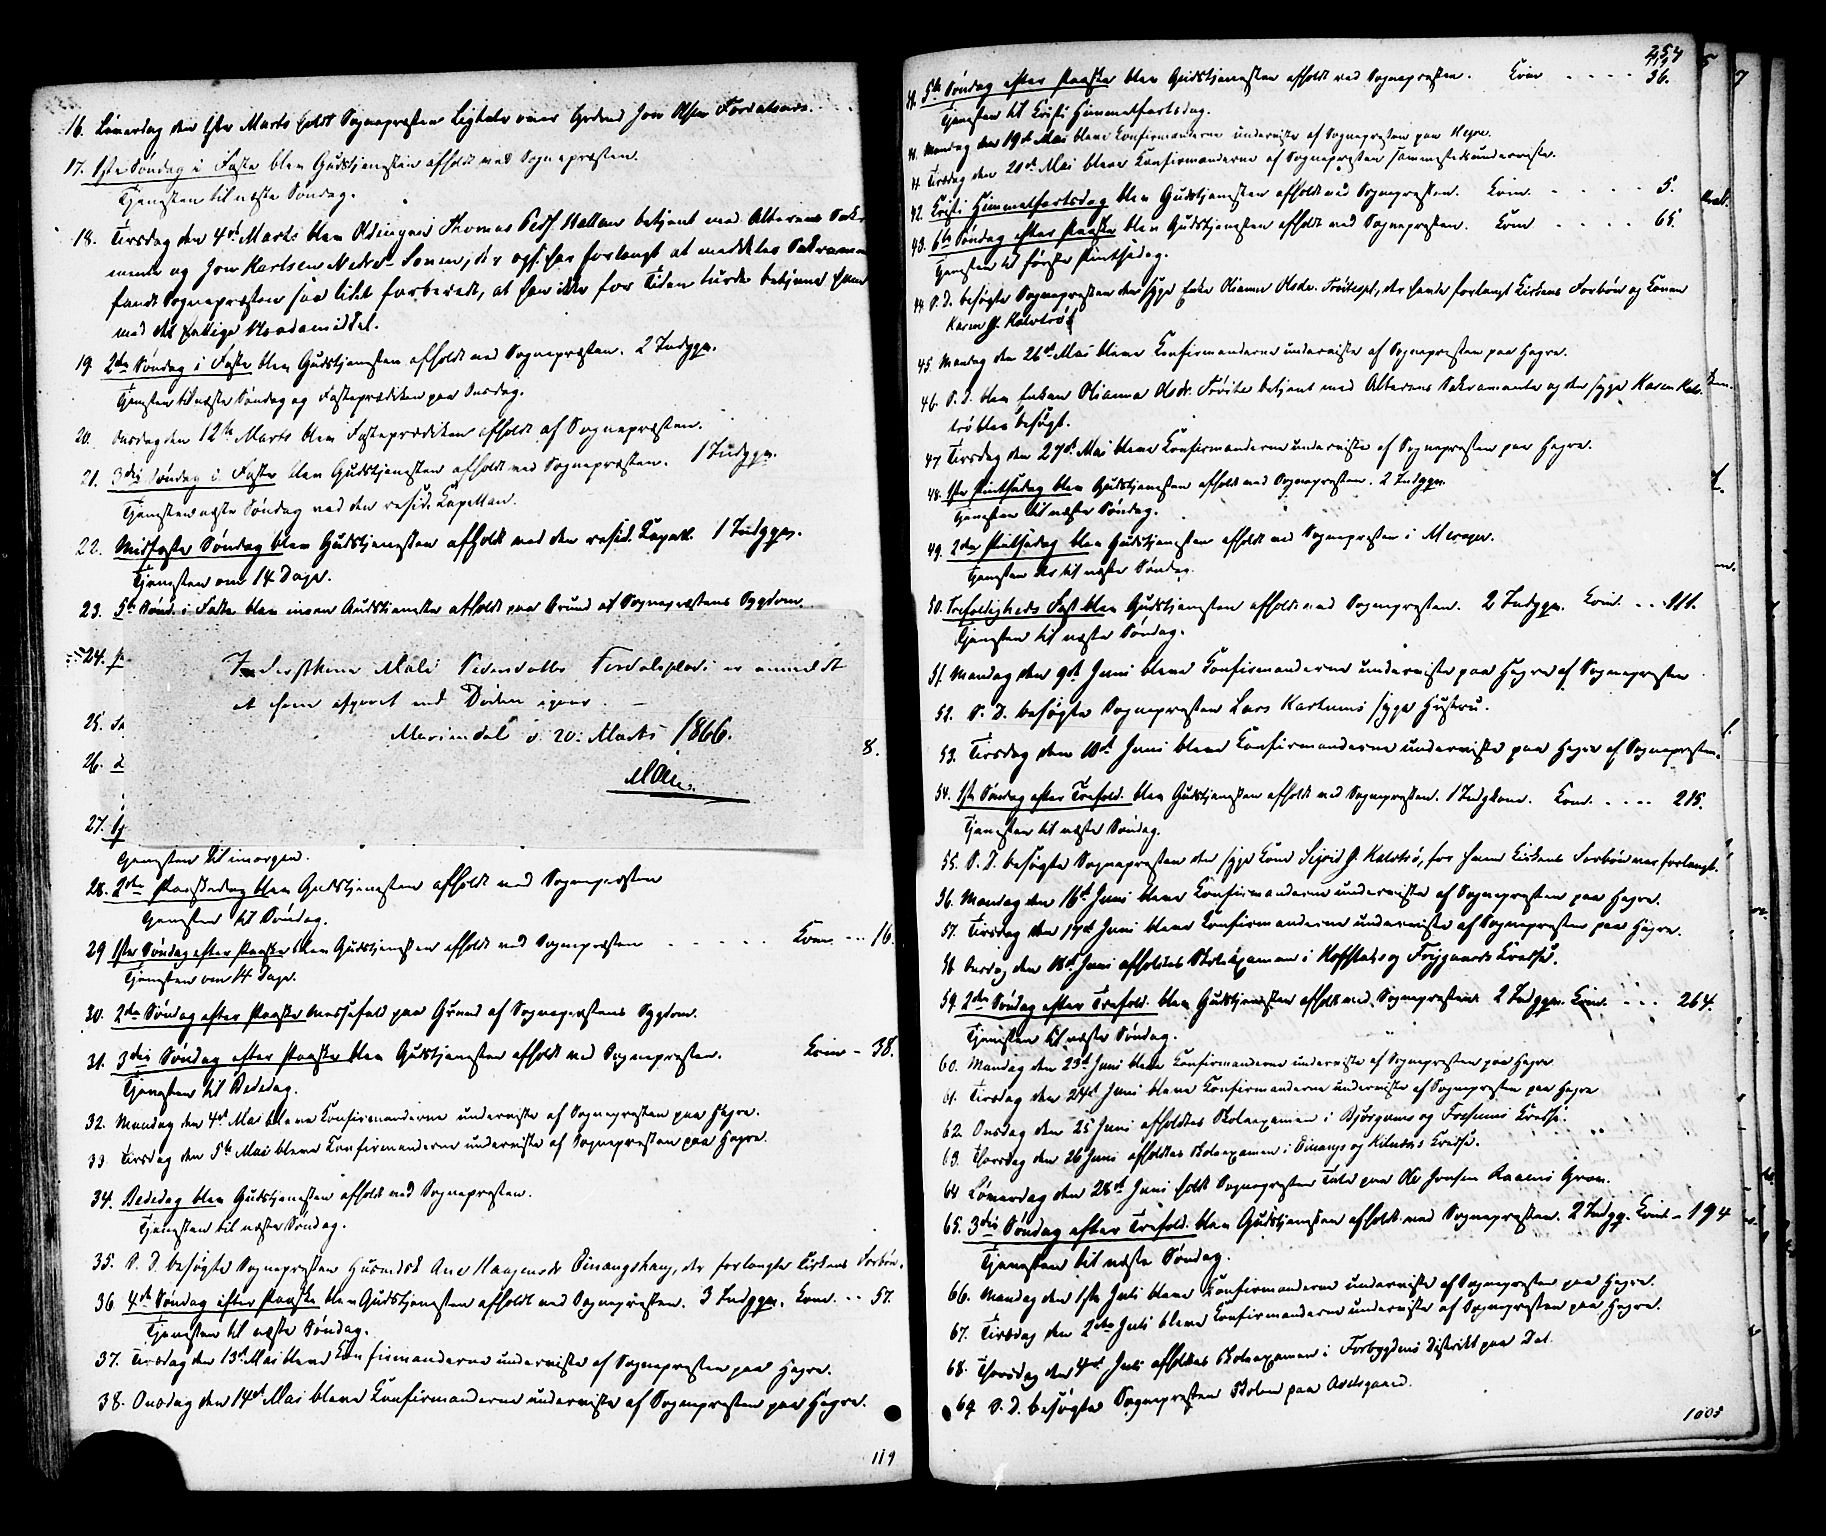 16. Løverdag den 1ste Marts holdt Sognepræsten Ligtale over
17. 1ste Søndag i Faste blev Gudstjenesten afholdt ved Sognepræsten.
Tjenesten til næste Søndag.
18. Tirsdag den 4de Marts blev Thomas Peds. betjent med Alterens Sakra-
mente og Jon Karlsen Nedre- der ogs. har forlangt at meddeles Sakramen
fandt Sognepræsten saa lidet forberedt, at han ikke for Tiden turde betjene ham
med det hellige Naademiddel.
19. 2den Søndag i Faste blev Gudstjenesten afholdt ved Sognepræsten. 2 Indggn.
Tjenesten til næste Søndag og Fasteprædiken paa Onsdag.
20. Onsdag den 12te Marts blev Fasteprædiken afholdt af Sognepræsten.
21. 3die Søndag i Faste blev Gudstjenesten afholdt ved Sognepræsten. 1 Indggn.
Tjenesten næste Søndag ved den resid. Kapellan.
22. Midfaste Søndag blev Gudstjenesten afholdt ved den resid. Kapell. 1 Indggn.
Tjenesten om 14 Dage.
23. 5te Sønd. i Faste blev ingen Gudstjeneste afholdt paa Grund af Sognepræstens Sygdom.
24.
Mali er anmeldt
at være afgaaet ved Døden igaar.
25.
Mariendal d. 20. Marts 1866.
26.
8.
27.
Tjenesten til imorgen.
28. 2den Paaskedag blev Gudstjenesten afholdt ved Sognepræsten
Tjenesten til Søndag.
29 1ste Søndag efter Paaske blev Gudstjenesten afholdt ved Sognepræsten - - - - - - Kom. - - - 16.
Tjenesten om 14 Dage.
30. 2den Søndag efter Paaske Messefald paa Grund af Sognepræstens Sygdom.
31. 3die Søndag efter Paaske blev Gudstjenesten afholdt ved Sognepræsten. Kom - 38.
Tjenesten til Bededag.
32. Mandag den 4de Mai bleve Konfirmanderne underviste af Sognepræsten paa Hegre.
33. Tirsdag den 5te Mai bleve Konfirmanderne underviste af Sognepræsten paa Hegre.
34. Bededag blev Gudstjenesten afholdt ved Sognepræsten.
Tjenesten til næste Søndag.
35. S. D. besøgte Sognepræsten Ane der forlangte Kirkens Forbøn.
36 4de Søndag efter Paaske blev Gudstjenesten afholdt ved Sognepræsten. 3 Indggn. Kom. - - 57.
Tjenesten til næste Søndag.
37. Tirsdag den 13de Mai bleve Konfirmanderne underviste af Sognepræsten paa Hegre.
38. Onsdag den 14de Mai bleve Konfirmanderne underviste af Sognepræsten paa Hegre.
119
254
5te Søndag efter Paaske blev Gudstjenesten afholdt ved Sognepræsten. Kom - - - - - 36.
Tjenesten til Kristi Himmelfartsdag.
Mandag den 19de Mai bleve Konfirmanderne underviste af Sognepræsten paa Hegre.
Tirsdag den 20de Mai bleve Konfirmanderne af Sognepræsten sammesteds underviste.
42. Kristi Himmelfartsdag blev Gudstjenesten afholdt ved Sognepræsten. Kom. - - - - - 5.
43. 6te Søndag efter Paaske blev Gudstjenesten afholdt ved Sognepræsten. Kom - - - - - 65.
Tjenesten til første Pintsedag.
44. S. D. besøgte Sognepræsten den syge Enke Olianna Olsdr. der havde forlangt Kirkens Forbøn og Konen
Karen
45. Mandag den 26de Mai bleve Konfirmanderne underviste af Sognepræsten paa Hegre.
46. S. D. blev Enken Olianna Olsdr. betjent med Alterens Sakramente og den syge Karen
blev besøgt.
47 Tirsdag den 27de Mai bleve Konfirmanderne underviste af Sognepræsten paa Hegre.
48. 1ste Pintsedag blev Gudstjenesten afholdt ved Sognepræsten. 2 Indggn.
Tjenesten til næste Søndag.
49. 2den Pintsedag blev Gudstjenesten afholdt ved Sognepræsten i Meraker.
Tjenesten her til næste Søndag.
50. Trefoldigheds Fest blev Gudstjenesten afholdt ved Sognepræsten. 2 Indggn. Kom. - - 211.
Tjenesten til næste Søndag.
51. Mandag den 9de Juni bleve Konfirmanderne underviste paa Hegre af Sognepræsten
52. S. D. besøgte Sognepræsten Lars syge Hustru.
53. Tirsdag den 10de Juni bleve Konfirmanderne underviste paa Hegre af Sognepræsten.
54. 1ste Søndag efter Trefold. blev Gudstjenesten afholdt ved Sognepræsten. 1 Kom. - - - - 215.
Tjenesten til næste Søndag.
55. S. D. besøgte Sognepræsten den syge Kone Sigrid for hvem Kirkens Forbøn var forlangt.
56. Mandag den 16de Juni bleve Konfirmanderne underviste af Sognepræsten paa Hegre.
57. Tirsdag den 17de Juni bleve Konfirmanderne underviste af Sognepræsten paa Hegre.
58 Onsdag den 18de Juni afholdtes Skoleexamen i og Kredse.
59. 2den Søndag efter Trefold. blev Gudstjenesten afholdt ved Sognepræsten. 2 Indggn. Kom. - - - 264.
Tjenesten til næste Søndag.
60. Mandag den 23de Juni bleve Konfirmanderne underviste af Sognepræsten paa Hegre
61. Tirsdag den 24de Juni bleve Konfirmanderne underviste af Sognepræsten paa Hegre
62. Onsdag den 25 Juni afholdtes Skoleexamen i og Kredse.
63. Thorsdag den 26 Juni afholdtes Skoleexamen i og Kredse.
64 Løverdag den 28de Juni holdt Sognepræsten Tale paa Ole Jonsen Grav.
65. 3die Søndag efter Trefold. blev Gudstjenesten afholdt ved Sognepræsten. 2 Indgg. Kom - 194
Tjenesten til næste Søndag.
66. Mandag den 1ste Juli bleve Konfirmanderne underviste af Sognepræsten paa Hegre.
67. Tirsdag den 2den Juli bleve Konfirmanderne underviste af Sognepræsten paa Hegre.
68. Thorsdag den 4de Juli afholdtes Skoleexamen i Forbygdens Distrikt paa
69. S. D. besøgte Sognepræsten Skolen paa
1005